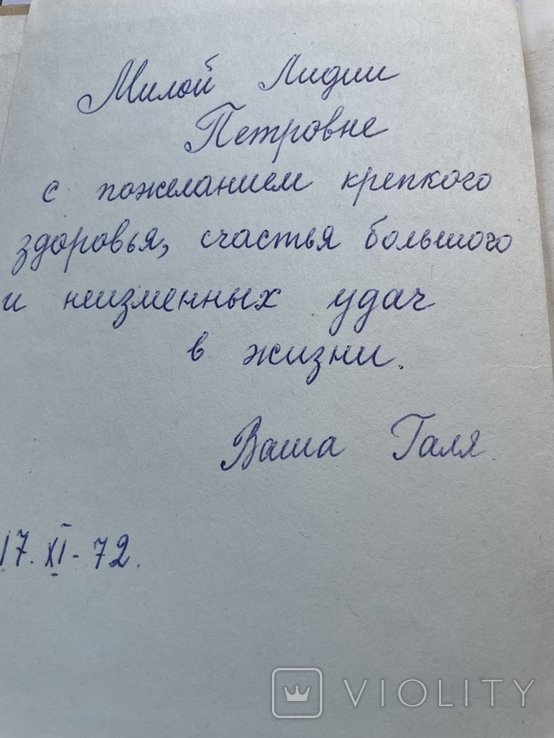 Милой Лидии
Петровне
с пожеланием крепкого
здоровья, счастья большого
и неизменных удач
в жизни.
Ваша Галя
17. XI - 72.
VIOLITY